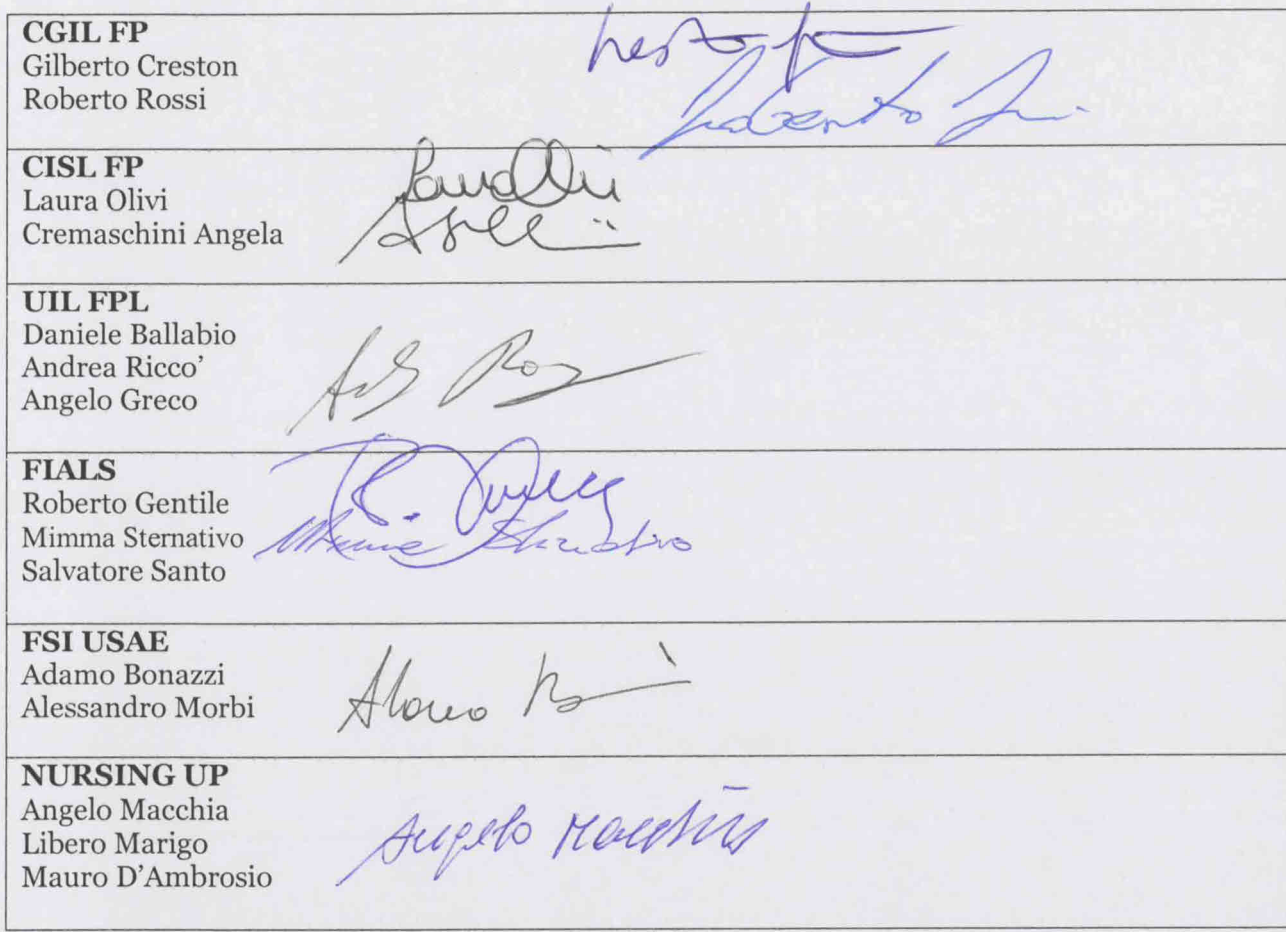 CGIL FP
Gilberto Creston
Roberto Rossi
CISL FP
Laura Olivi
Cremaschini Angela
UIL FPL
Daniele Ballabio
Andrea Ricco'
Angelo Greco
FIALS
Roberto Gentile
Mimma Sternativo
Salvatore Santo
FSI USAE
Adamo Bonazzi
Alessandro Morbi
NURSING UP
Angelo Macchia
Libero Marigo
Mauro D'Ambrosio
Angelo Macchia